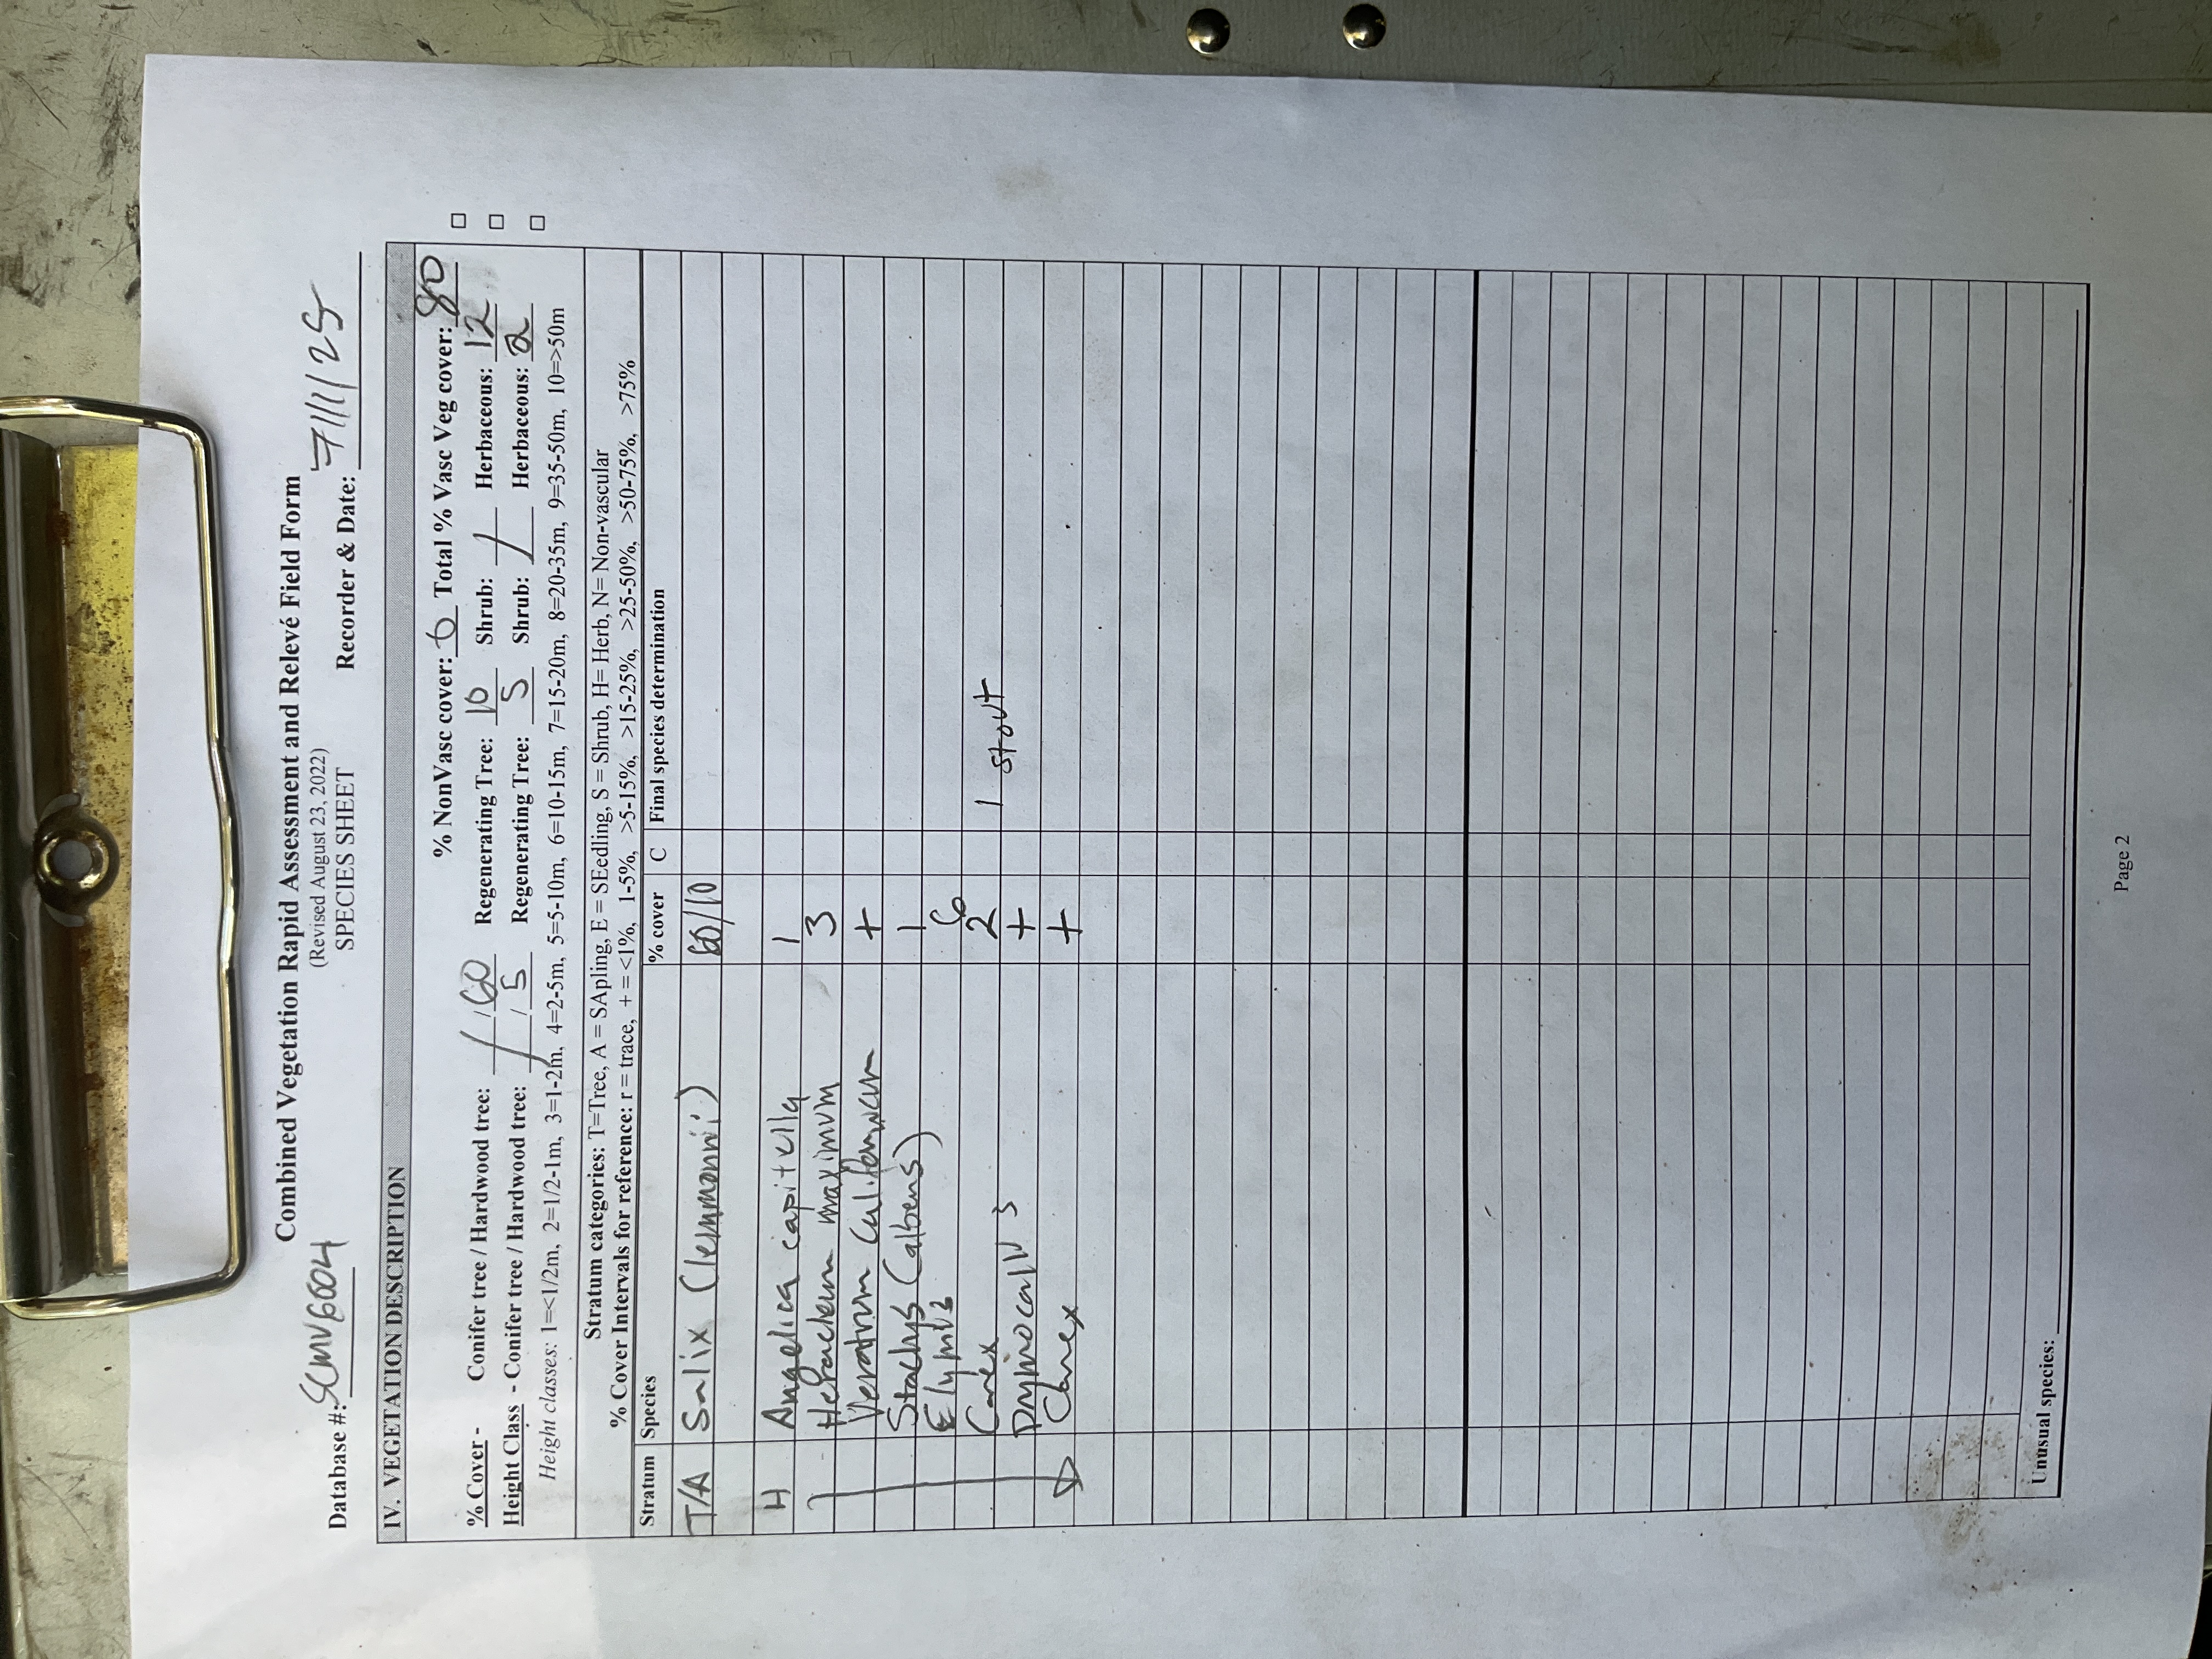 Combined Vegetation Rapid Assessment and Relevé Field Form
(Revised August 23, 2022)
SPECIES SHEET
Database #: SCMV6604 Recorder & Date: 7/11/25
IV. VEGETATION DESCRIPTION
% NonVasc cover: 0 Total % Vasc Veg cover: 80
% Cover - Conifer tree / Hardwood tree: / / 60 Regenerating Tree: 10 Shrub: / Herbaceous: 12
Height Class - Conifer tree / Hardwood tree: / / 5 Regenerating Tree: 5 Shrub: / Herbaceous: 2
Height classes: 1=<1/2m, 2=1/2-1m, 3=1-2m, 4=2-5m, 5=5-10m, 6=10-15m, 7=15-20m, 8=20-35m, 9=35-50m, 10=>50m
Stratum categories: T=Tree, A = SApling, E = SEedling, S = Shrub, H= Herb, N= Non-vascular
% Cover Intervals for reference: r = trace, + = <1%, 1-5%, >5-15%, >15-25%, >25-50%, >50-75%, >75%
Stratum Species % cover C Final species determination
T/A Salix (lemmonii) 60/10
H Angelica capitella 1
Heracleum maximum 3
Veratrum californicum +
Stachys (albens) 1
Elymus 6
Carex 2 1 stout
Drymocallis +
Carex +
Unusual species:
Page 2